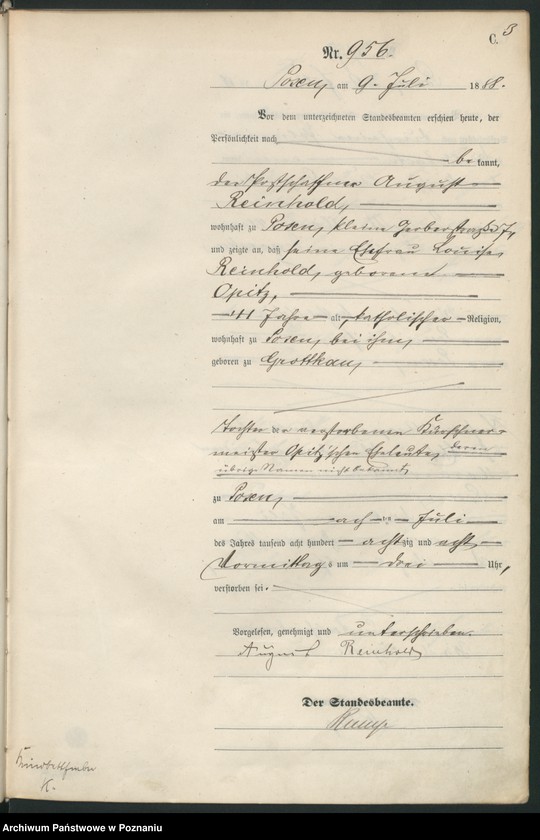 C. 3
Nr. 956.
Posen, am 9. Juli 1888.
Vor dem unterzeichneten Standesbeamten erschien heute, der
Persönlichkeit nach
be kannt,
der Postschaffner August
Reinhold,
wohnhaft zu Posen, kleine Gerberstraße 7,
und zeigte an, daß seine Ehefrau Louise
Reinhold, geborene
Opitz,
41 Jahre alt, katholischer Religion,
wohnhaft zu Posen, bei ihm,
geboren zu Grottkau,
Tochter der verstorbenen Kürschner-
meister Opitz'schen Eheleute, deren
übrige Namen nicht bekannt,
zu Posen,
am acht en Juli
des Jahres tausend acht hundert achtzig und acht,
Vormittags um drei Uhr,
verstorben sei.
Vorgelesen, genehmigt und unterschrieben.
August Reinhold
Der Standesbeamte.
K.
Archiwum Państwowe w Poznaniu